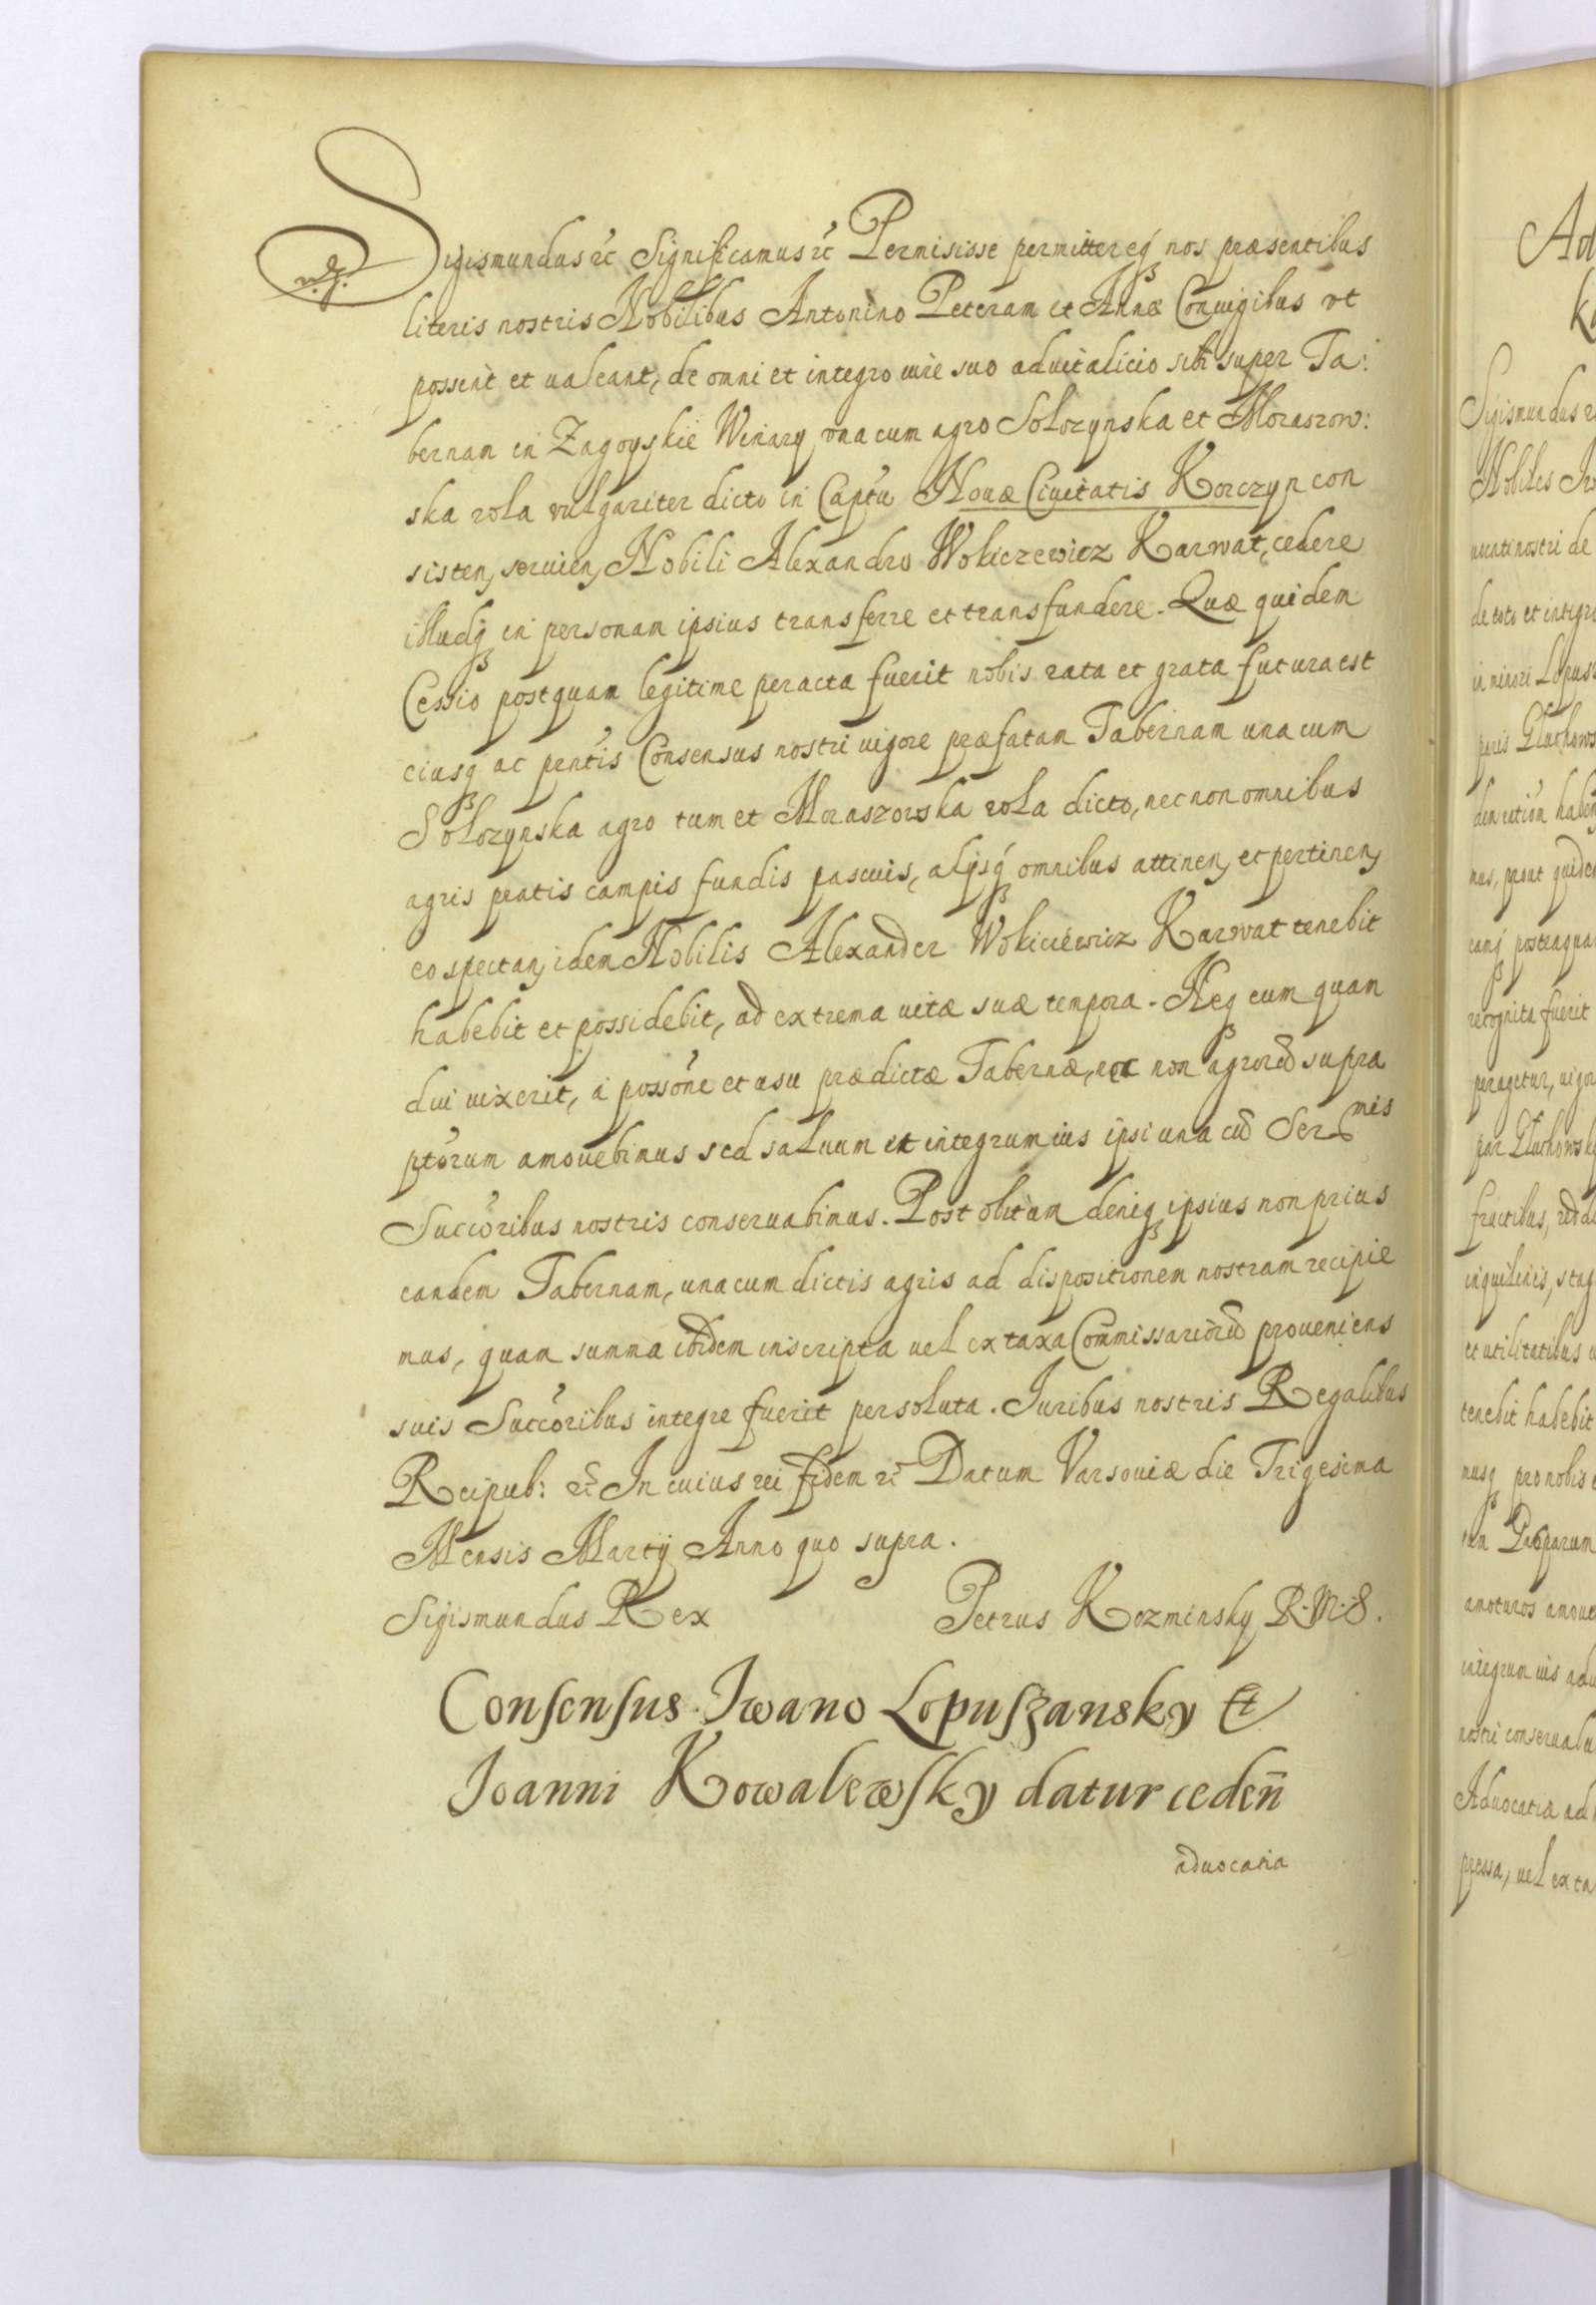 Sigismundus etc Significamus etc Permisisse permittereq nos praesentibus
literis nostris Nobilibus Antonino Peteram et Annae Coniugibus vt
possent et ualeant, de omni et integro iure suo aduitalicio sibi super Ta:
bernam in Zagoyskie Winary vna cum agro Solozynska et Moraszow:
ska rola vulgariter dicto in Captu Nouae Ciuitatis Korczyn con
sisten, seruien, Nobili Alexandro Wokiczewicz Karwat, cedere
illudq in personam ipsius transferre et transfundere. Quae quidem
Cessio postquam legitime peracta fuerit nobis rata et grata futura est
eiusq ac pentis Consensus nostri uigore praefatam Tabernam una cum
Solozynska agro tum et Moraszowska rola dicto, necnon omnibus
agris pratis campis fundis pascuis, alijsq omnibus attinen, et pertinen,
eo spectan, idem Nobilis Alexander Wokiciewicz Karwat tenebit
habebit et possidebit, ad extrema uitae suae tempora. Neq eum quan
diu uixerit, a possone et usu praedictae Tabernae, nec non agrorũ supra
ptorum amouebimus sed saluum et integrum ius ipsi una cũ Ser.mis
Succoribus nostris conseruabimus. Post obitum deniq ipsius non prius
eandem Tabernam, una cum dictis agris ad dispositionem nostram recipie
mus, quam summa ibidem inscripta uel ex taxa Commissariorũ proueniens
suis Succoribus integre fuerit persoluta. Iuribus nostris Regalibus
Reipub: etc In cuius rei fidem etc Datum Varsouiae die Trigesima
Mensis Martij Anno quo supra.
Sigismundus Rex Petrus Kozminsky R.M.S.
Consensus Iwano Lopuszansky et
Ioanni Kowalewsky datur cedeñ
aduocatia